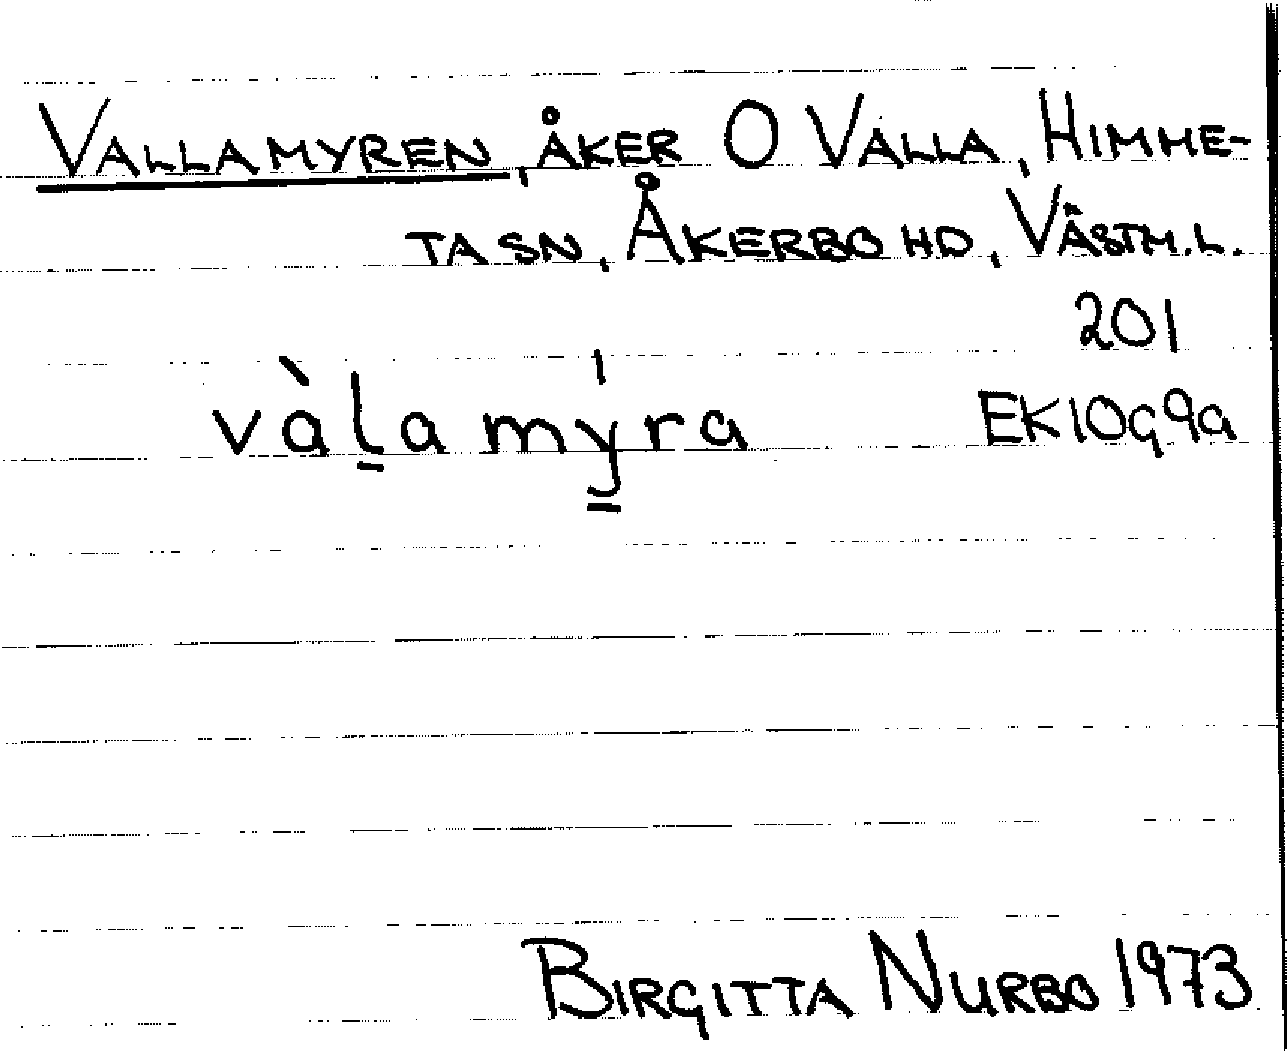 VALLAMYREN, ÅKER O VALLA, HIMME-
TA SN, ÅKERBO HD, VÄSTM.L.
201
vàl̲a mý̲ra EK10G9a
BIRGITTA NURBO 1973